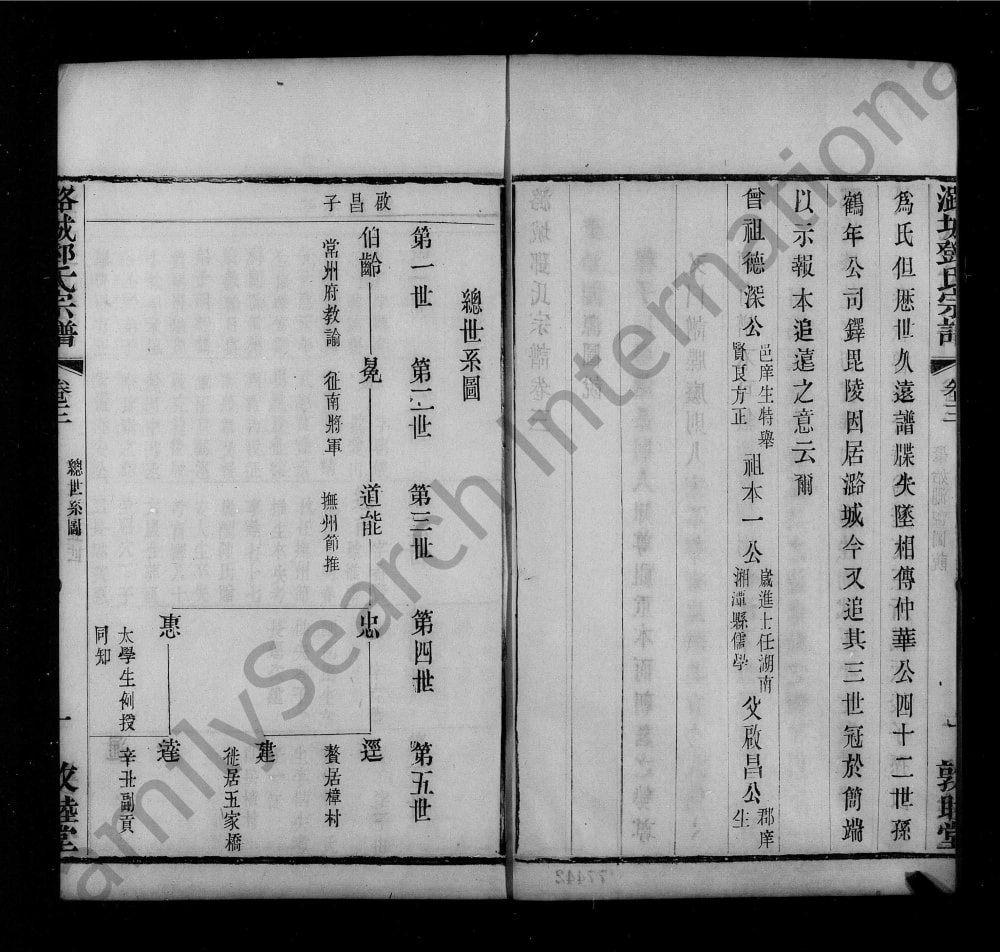 潞城鄧氏宗譜
卷三
一
敦睦堂
爲氏但歷世久遠譜牒失墜相傳仲華公四十二世孫
鶴年公司鐸毘陵因居潞城今又追其三世冠於簡端
以示報本追遠之意云爾
曾祖德深公 邑庠生特舉賢良方正 祖本一公 歲進士任湖南湘潭縣儒學 父啟昌公 郡庠生
總世系圖
第一世 第二世 第三世 第四世 第五世
啟昌子
伯齡 晃 道能 忠 逕
常州府教諭 征南將軍 撫州節推 贅居樟村
建
徙居五家橋
惠 達
太學生例授同知 辛丑副貢
潞城鄧氏宗譜
卷三
總世系圖
一
敦睦堂
77442
FamilySearch International